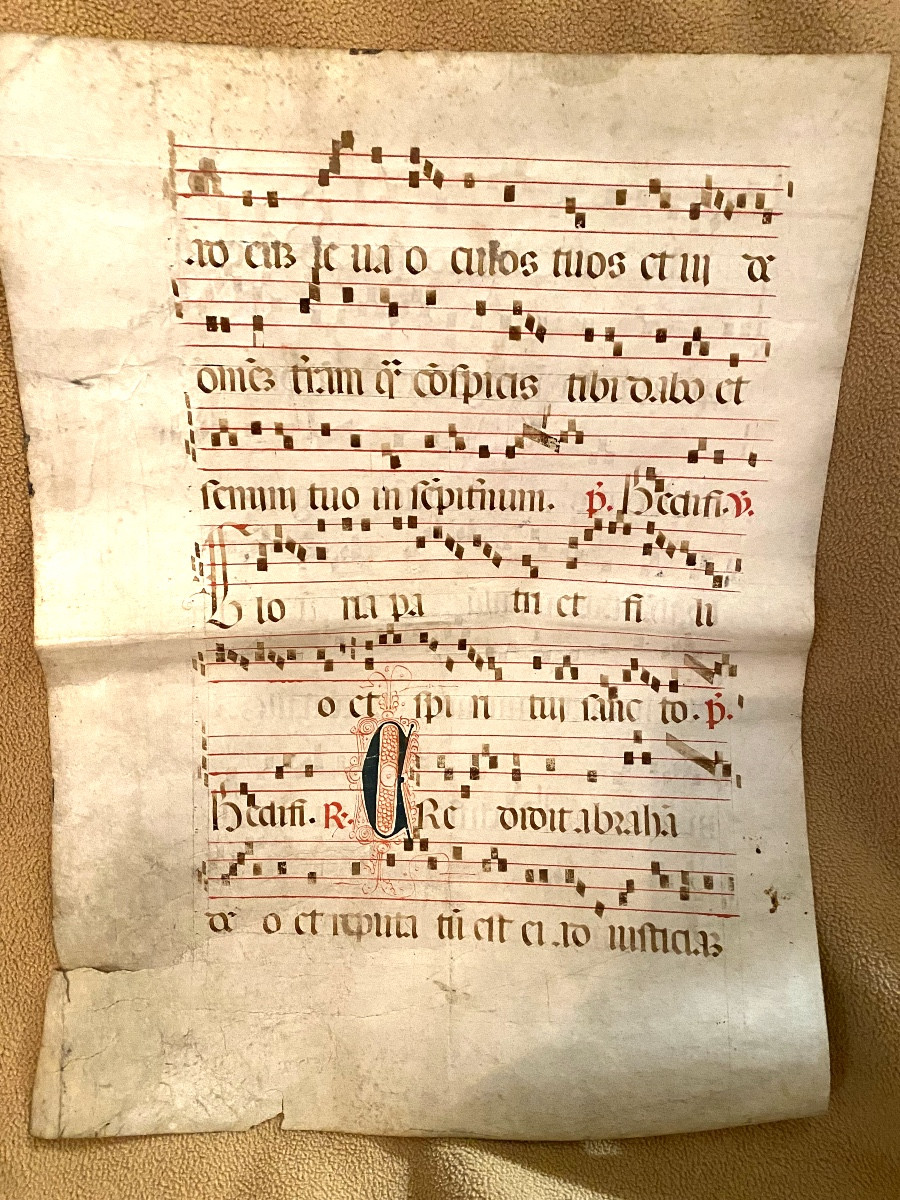 ad eū leva oculos tuos et vi de
omnē terram quā cōspicis tibi dabo et
semini tuo in sēpitnum. p̄. Bēdicti. v̄.
Glo ria pa tri et fi li
o et spi ri tui sanc to. p̄.
℟. CRe didit abrahā
de o et reputa tū est ei ad iusticiaz